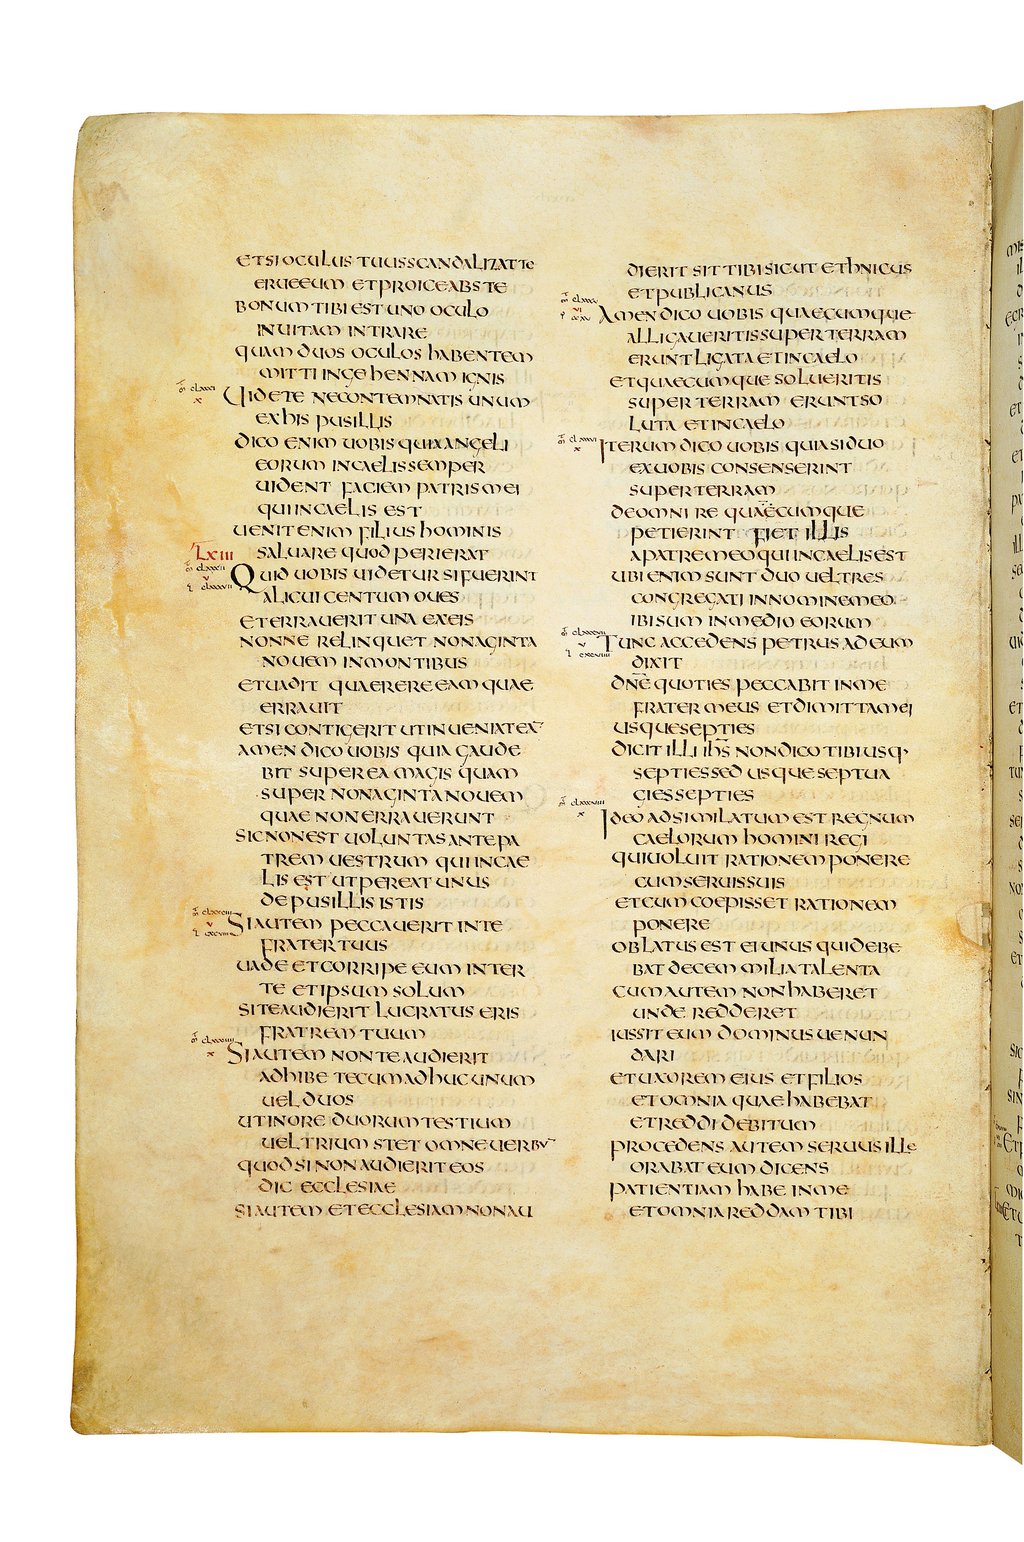 ETSI OCULUS TUUS SCANDALIZAT TE
ERUE EUM ET PROICE ABS TE
BONUM TIBI EST UNO OCULO
IN UITAM INTRARE
QUAM DUOS OCULOS HABENTEM
MITTI IN GEHENNAM IGNIS
UIDETE NE CONTEMNATIS UNUM
EX HIS PUSILLIS
DICO ENIM UOBIS QUIA ANGELI
EORUM IN CAELIS SEMPER
UIDENT FACIEM PATRIS MEI
QUI IN CAELIS EST
UENIT ENIM FILIUS HOMINIS
LXIII SALUARE QUOD PERIERAT
QUID UOBIS UIDETUR SI FUERINT
ALICUI CENTUM OUES
ET ERRAUERIT UNA EX EIS
NONNE RELINQUET NONAGINTA
NOUEM IN MONTIBUS
ET UADIT QUAERERE EAM QUAE
ERRAUIT
ET SI CONTIGERIT UT INUENIAT EA
AMEN DICO UOBIS QUIA GAUDE
BIT SUPER EA MAGIS QUAM
SUPER NONAGINTA NOUEM
QUAE NON ERRAUERUNT
SIC NON EST UOLUNTAS ANTE PA
TREM UESTRUM QUI IN CAE
LIS EST UT PEREAT UNUS
DE PUSILLIS ISTIS
SI AUTEM PECCAUERIT IN TE
FRATER TUUS
UADE ET CORRIPE EUM INTER
TE ET IPSUM SOLUM
SI TE AUDIERIT LUCRATUS ERIS
FRATREM TUUM
SI AUTEM NON TE AUDIERIT
ADHIBE TECUM ADHUC UNUM
UEL DUOS
UT IN ORE DUORUM TESTIUM
UEL TRIUM STET OMNE UERBU
QUOD SI NON AUDIERIT EOS
DIC ECCLESIAE
SI AUTEM ET ECCLESIAM NON AU
DIERIT SIT TIBI SICUT ETHNICUS
ET PUBLICANUS
AMEN DICO UOBIS QUAECUMQUE
ALLIGAUERITIS SUPER TERRAM
ERUNT LIGATA ET IN CAELO
ET QUAECUMQUE SOLUERITIS
SUPER TERRAM ERUNT SO
LUTA ET IN CAELO
ITERUM DICO UOBIS QUIA SI DUO
EX UOBIS CONSENSERINT
SUPER TERRAM
DE OMNI RE QUAECUMQUE
PETIERINT FIET ILLIS
A PATRE MEO QUI IN CAELIS EST
UBI ENIM SUNT DUO UEL TRES
CONGREGATI IN NOMINE MEO
IBI SUM IN MEDIO EORUM
TUNC ACCEDENS PETRUS AD EUM
DIXIT
DNE QUOTIES PECCABIT IN ME
FRATER MEUS ET DIMITTAM EI
USQUE SEPTIES
DICIT ILLI IHS NON DICO TIBI USQ
SEPTIES SED USQUE SEPTUA
GIES SEPTIES
IDEO ADSIMILATUM EST REGNUM
CAELORUM HOMINI REGI
QUI UOLUIT RATIONEM PONERE
CUM SERUIS SUIS
ET CUM COEPISSET RATIONEM
PONERE
OBLATUS EST EI UNUS QUI DEBE
BAT DECEM MILIA TALENTA
CUM AUTEM NON HABERET
UNDE REDDERET
IUSSIT EUM DOMINUS UENUN
DARI
ET UXOREM EIUS ET FILIOS
ET OMNIA QUAE HABEBAT
ET REDDI DEBITUM
PROCEDENS AUTEM SERUUS ILLE
ORABAT EUM DICENS
PATIENTIAM HABE IN ME
ET OMNIA REDDAM TIBI